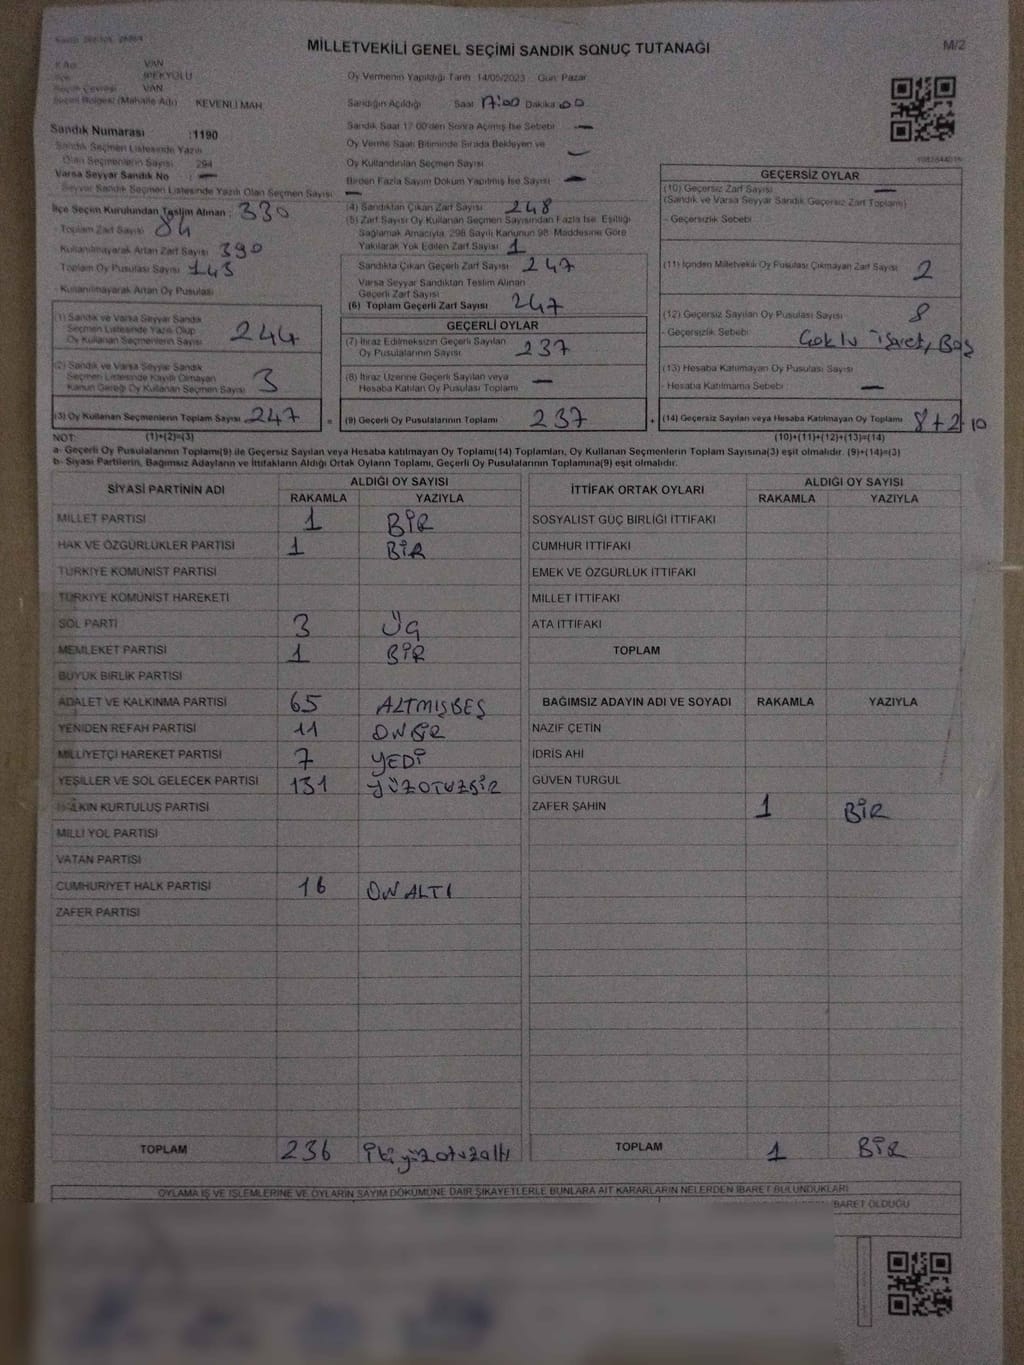 MİLLETVEKİLİ GENEL SEÇİMİ SANDIK SONUÇ TUTANAĞI
M/2
VAN
İPEKYOLU
VAN
Seçim Bölgesi (Mahalle Adı) KEVENLİ MAH
Sandık Numarası :1190
Sandık Seçmen Listesinde Yazılı
Olan Seçmenlerin Sayısı 294
Varsa Seyyar Sandık No : —
Seyyar Sandık Seçmen Listesinde Yazılı Olan Seçmen Sayısı —
Oy Vermenin Yapıldığı Tarih 14/05/2023 Gün: Pazar
Sandığın Açıldığı Saat 17:00 Dakika 00
Sandık Saat 17:00'den Sonra Açılmış İse Sebebi —
Oy Verme Saati Bitiminde Sırada Bekleyen ve
Oy Kullandırılan Seçmen Sayısı —
Birden Fazla Sayım Döküm Yapılmış İse Sayısı —
İlçe Seçim Kurulundan Teslim Alınan : 330
- Toplam Zarf Sayısı 84
- Kullanılmayarak Artan Zarf Sayısı 390
Toplam Oy Pusulası Sayısı 143
- Kullanılmayarak Artan Oy Pusulası
(1) Sandık ve Varsa Seyyar Sandık
Seçmen Listesinde Yazılı Olup
Oy Kullanan Seçmenlerin Sayısı 244
(2) Sandık ve Varsa Seyyar Sandık
Seçmen Listesinde Kayıtlı Olmayan
Kanun Gereği Oy Kullanan Seçmen Sayısı 3
(3) Oy Kullanan Seçmenlerin Toplam Sayısı 247
(4) Sandıktan Çıkan Zarf Sayısı 248
(5) Zarf Sayısı Oy Kullanan Seçmen Sayısından Fazla İse, Eşitliği
Sağlamak Amacıyla, 298 Sayılı Kanunun 98. Maddesine Göre
Yakılarak Yok Edilen Zarf Sayısı 1
Sandıkta Çıkan Geçerli Zarf Sayısı 247
Varsa Seyyar Sandıktan Teslim Alınan
Geçerli Zarf Sayısı
(6) Toplam Geçerli Zarf Sayısı 247
GEÇERLİ OYLAR
(7) İtiraz Edilmeksizin Geçerli Sayılan
Oy Pusulalarının Sayısı 237
(8) İtiraz Üzerine Geçerli Sayılan veya
Hesaba Katılan Oy Pusulası Toplamı —
= (9) Geçerli Oy Pusulalarının Toplamı 237
GEÇERSİZ OYLAR
(10) Geçersiz Zarf Sayısı —
(Sandık ve Varsa Seyyar Sandık Geçersiz Zarf Toplamı)
- Geçersizlik Sebebi :
(11) İçinden Milletvekili Oy Pusulası Çıkmayan Zarf Sayısı 2
(12) Geçersiz Sayılan Oy Pusulası Sayısı 8
- Geçersizlik Sebebi : Çoklu İşaret, Boş
(13) Hesaba Katılmayan Oy Pusulası Sayısı
- Hesaba Katılmama Sebebi : —
+ (14) Geçersiz Sayılan veya Hesaba Katılmayan Oy Toplamı 8+2=10
NOT: (1)+(2)=(3) (10)+(11)+(12)+(13)=(14)
a- Geçerli Oy Pusulalarının Toplamı(9) ile Geçersiz Sayılan veya Hesaba katılmayan Oy Toplamı(14) Toplamları, Oy Kullanan Seçmenlerin Toplam Sayısına(3) eşit olmalıdır. (9)+(14)=(3)
b- Siyasi Partilerin, Bağımsız Adayların ve İttifakların Aldığı Ortak Oyların Toplamı, Geçerli Oy Pusulalarının Toplamına(9) eşit olmalıdır.
SİYASİ PARTİNİN ADI ALDIĞI OY SAYISI
RAKAMLA YAZIYLA
MİLLET PARTİSİ 1 BİR
HAK VE ÖZGÜRLÜKLER PARTİSİ 1 BİR
TÜRKİYE KOMÜNİST PARTİSİ
TÜRKİYE KOMÜNİST HAREKETİ
SOL PARTİ 3 ÜÇ
MEMLEKET PARTİSİ 1 BİR
BÜYÜK BİRLİK PARTİSİ
ADALET VE KALKINMA PARTİSİ 65 ALTMIŞBEŞ
YENİDEN REFAH PARTİSİ 11 ONBİR
MİLLİYETÇİ HAREKET PARTİSİ 7 YEDİ
YEŞİLLER VE SOL GELECEK PARTİSİ 131 YÜZOTUZBİR
HALKIN KURTULUŞ PARTİSİ
MİLLİ YOL PARTİSİ
VATAN PARTİSİ
CUMHURİYET HALK PARTİSİ 16 ONALTI
ZAFER PARTİSİ
TOPLAM 236 İkiyüzotuzaltı
İTTİFAK ORTAK OYLARI ALDIĞI OY SAYISI
RAKAMLA YAZIYLA
SOSYALİST GÜÇ BİRLİĞİ İTTİFAKI
CUMHUR İTTİFAKI
EMEK VE ÖZGÜRLÜK İTTİFAKI
MİLLET İTTİFAKI
ATA İTTİFAKI
TOPLAM
BAĞIMSIZ ADAYIN ADI VE SOYADI RAKAMLA YAZIYLA
NAZİF ÇETİN
İDRİS AHİ
GÜVEN TURGUL
ZAFER ŞAHİN 1 BİR
TOPLAM 1 BİR
OYLAMA İŞ VE İŞLEMLERİNE VE OYLARIN SAYIM DÖKÜMÜNE DAİR ŞİKAYETLERLE BUNLARA AİT KARARLARIN NELERDEN İBARET BULUNDUKLARI
İBARET OLDUĞU